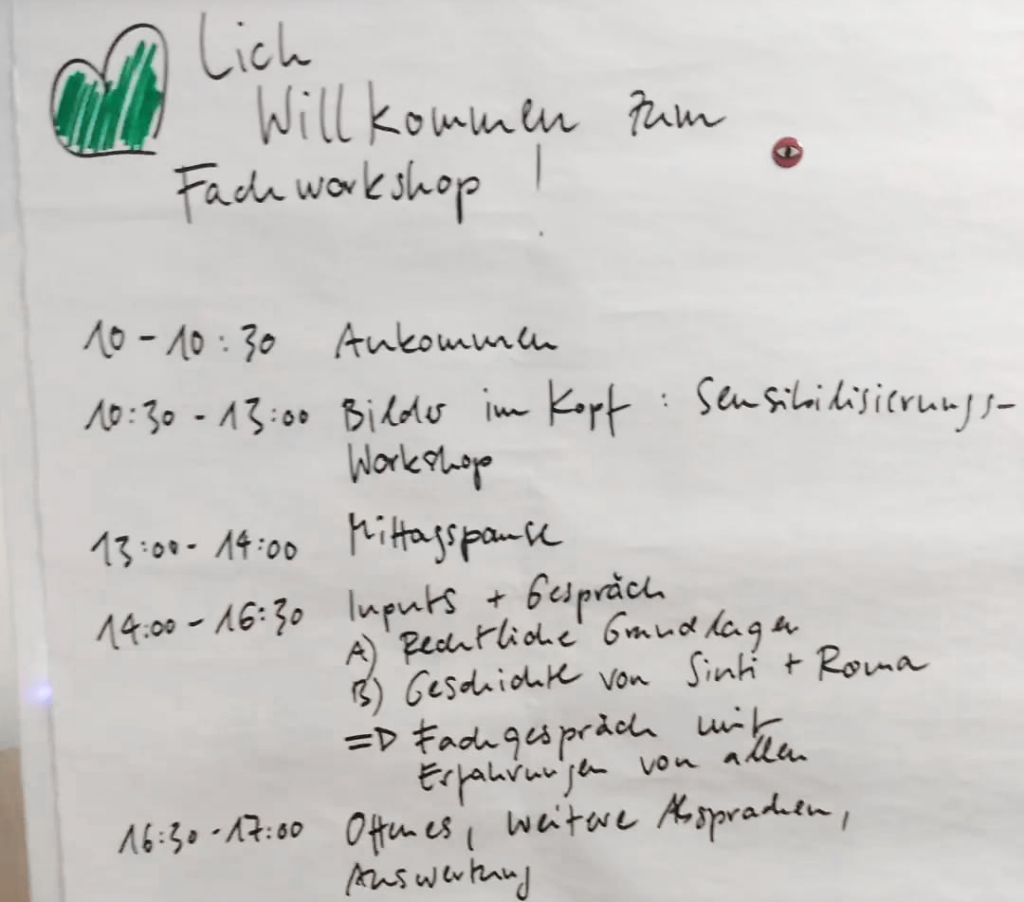 lich
Willkommen zum
Fachworkshop!
10 - 10:30 Ankommen
10:30 - 13:00 Bilder im Kopf: Sensibidisierungs-
Workshop
13:00 - 14:00 Mittagspause
14:00 - 16:30 Inputs + Gespräch
A) Rechtliche Grundlagen
B) Geschichte von Sinti + Roma
=> Fachgespräch mit
Erfahrungen von allen
16:30 - 17:00 Offenes, weitere Absprachen,
Auswertung